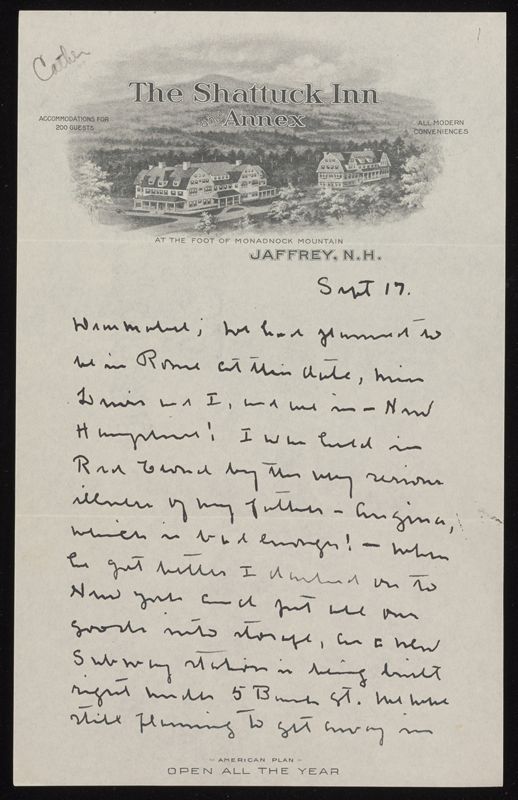 Cather
1
The Shattuck Inn
and Annex
ACCOMMODATIONS FOR
200 GUESTS
ALL MODERN
CONVENIENCES
AT THE FOOT OF MONADNOCK MOUNTAIN
JAFFREY, N.H.
Sept 17.
we had planned to
be in Rome at this date, Miss
Lewis and I, and we in — New
Hampshire! I was held in
Red Cloud by the very serious
illness of my father — Angina,
which is bad enough! — When
he got better I dashed on to
New York and put all our
goods into storage, as a new
Subway station is being built
right under 5 Bank St. We were
still planning to get away in
- AMERICAN PLAN -
OPEN ALL THE YEAR